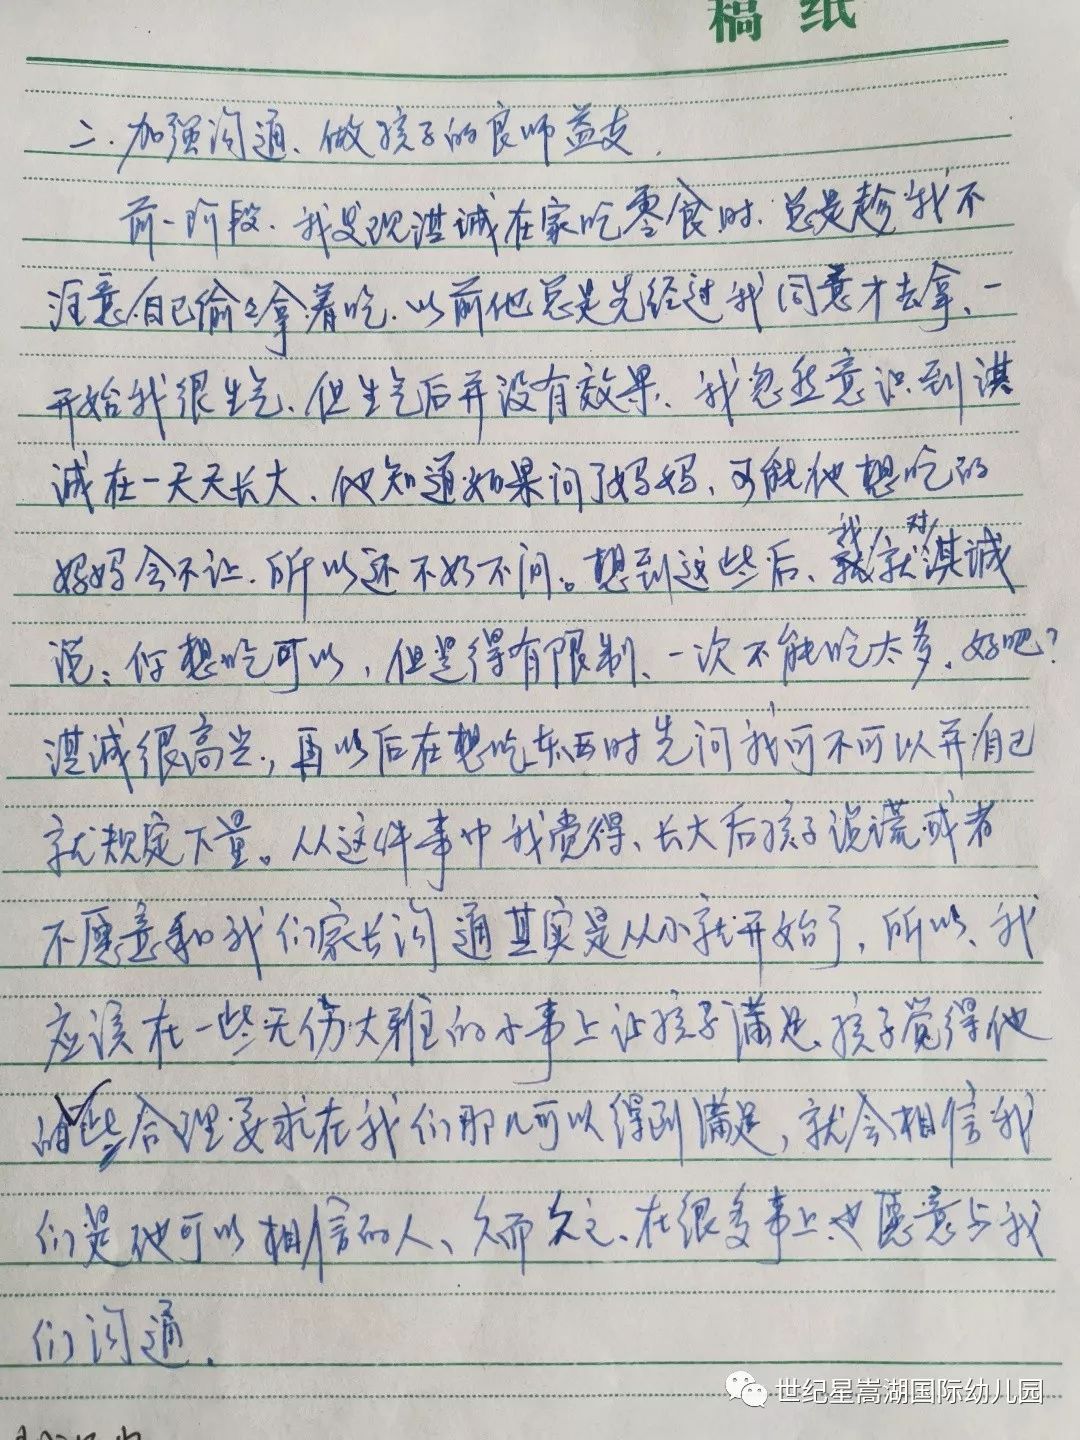 稿纸
二、加强沟通、做孩子的良师益友.
前一阶段.我发现淇诚在家吃零食时.总是趁我不
注意自己偷偷拿着吃.以前他总是先经过我同意才去拿、一
开始我很生气、但生气后并没有效果、我忽然意识到淇
诚在一天天长大、他知道如果问了妈妈、可能他想吃的
妈妈会不让.所以还不如不问。想到这些后、我就对淇诚
说：你想吃可以，但是得有限制、一次不能吃太多.好吧？
淇诚很高兴,再以后在想吃东西时先问我可不可以并自己
就规定下量。从这件事中我觉得、长大后孩子说谎或者
不愿意和我们家长沟通其实是从小就开始了，所以、我
应该在一些无伤大雅的小事上让孩子满足、孩子觉得他
的些合理要求在我们那儿可以得到满足，就会相信我
们是他可以相信的人、久而久之、在很多事上也愿意与我
们沟通.
世纪星嵩湖国际幼儿园